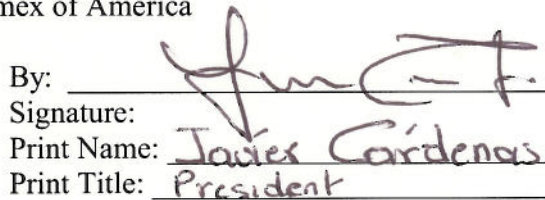 mex of America
By:
Signature:
Print Name: Javier Cárdenas
Print Title: President